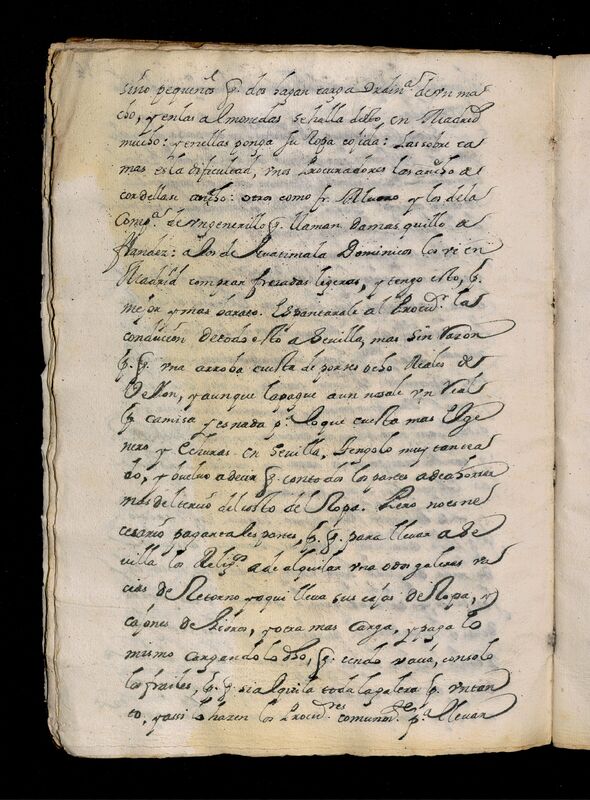 sino pequeños q. dos hagan carga ordin.ª de un ma
cho, y en las almonedas se halla desto, en Madrid
mucho: y en ellas ponga su Ropa cojida: Las sobre ca
mas es la dificultad, unos Procuradores las an
cordellate ancho: otros como fr. Alvaro y los de la
Comp.ª de un generillo q. llaman damasquillo de
flandez: a los de Guatimala Dominicos los vi en
Madrid comprar frezadas ligeras, y tengo esto, p.
mejor y mas barato. Espantarale al Procu.r la
conduccion de todo esto a Sevilla, mas sin razon
p. q. una arroba cuesta de portes ocho Reales de
Vellon, y aunque la pague a un no sale un Real
p. camisa y es nada p.ª lo que cuesta mas el ge
nero y echuras en Sevilla, tengolo muy tantea
do, y buelvo a decir q. con todos los portes a de ahorrar
mas del tercio del costo del Ropa. Pero no es ne
cesario pagar tales portes, p. q. para llevar a Se
villa los Relig.s a de alquilar una o dos galeras va
cias de Retorno y aqui lleva sus cajas de Ropa, y
cajones de libros, y otra mas carga, y paga lo
mismo cargandolo dho, q. yendo vacia, con solo
los frailes, p. q. se alquila toda la galera p. un tan
to, y assi lo hazen los Procu.res comunm.te p.ª llevar